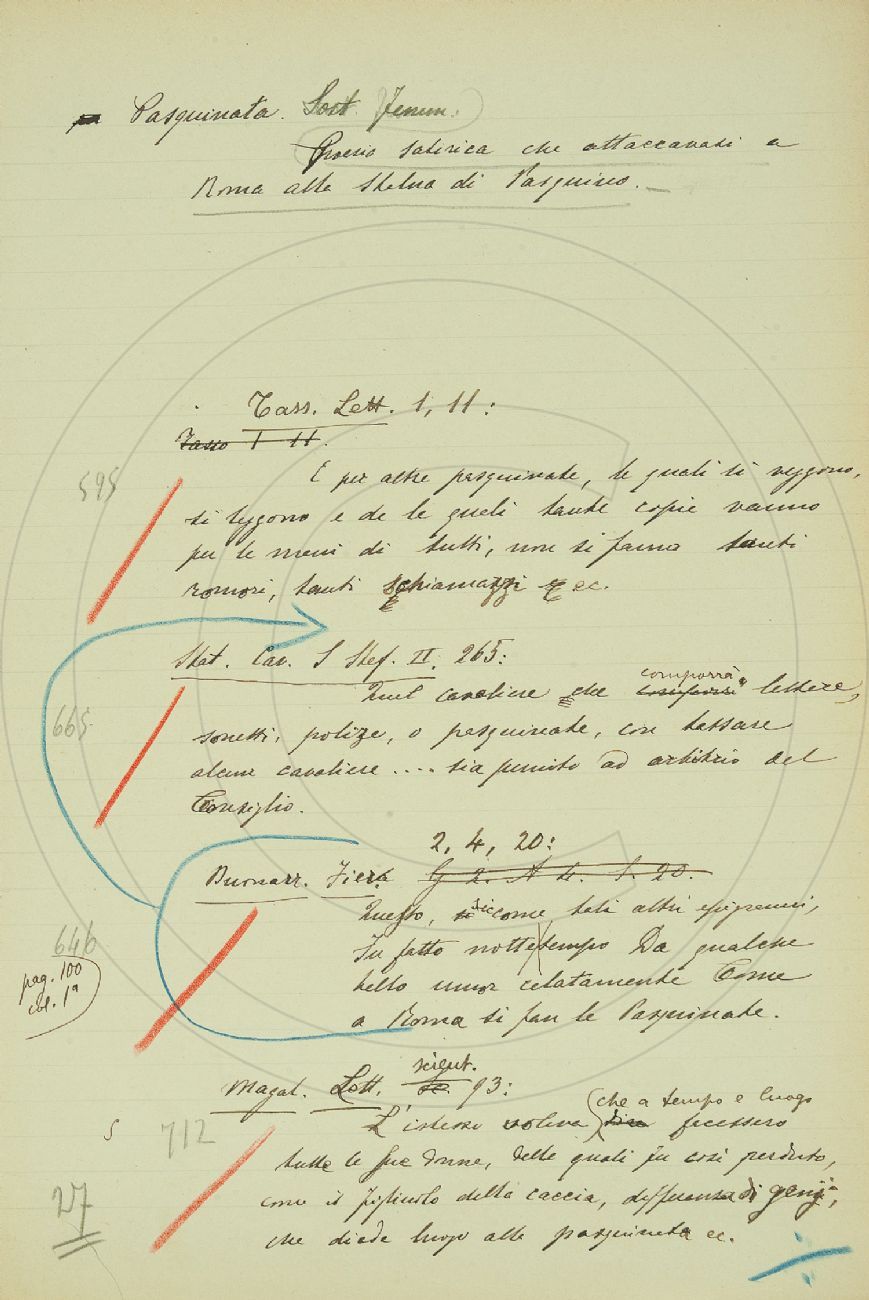 Pasquinata. Sost. Femm.
Poesia satirica che attaccavasi a
Roma alla statua di Pasquino.
Tass. Lett. 1, 11:
Tasso 1 11.
595
E per altre pasquinate, le quali si veggono,
si leggono e de le quali tante copie vanno
per le mani di tutti, non si fanno tanti
romori, tanti schiamazzi ec.
Stat. Cav. S Stef. II. 265:
comporrà
Quel cavaliere che lettere,
665
sonetti, polize, o pasquinate, con tassare
alcun cavaliere .... sia punito ad arbitrio del
Consiglio.
2, 4, 20:
Buonarr. Fiera G 2. A 4. S. 20.
Questo, siccome tali altri epigrammi,
646
Fu fatto nottetempo Da qualche
pag. 100
col. 1ª
bello umor celatamente Come
a Roma si fan le Pasquinate.
scient.
Magal. Lett. 93:
che a tempo e luogo
L'istesso voleva facessero
S
712
tutte le sue donne, delle quali fu così perduto,
27
come il figliuolo della caccia, differenza di genij,
che diede luogo alla pasquinata ec.